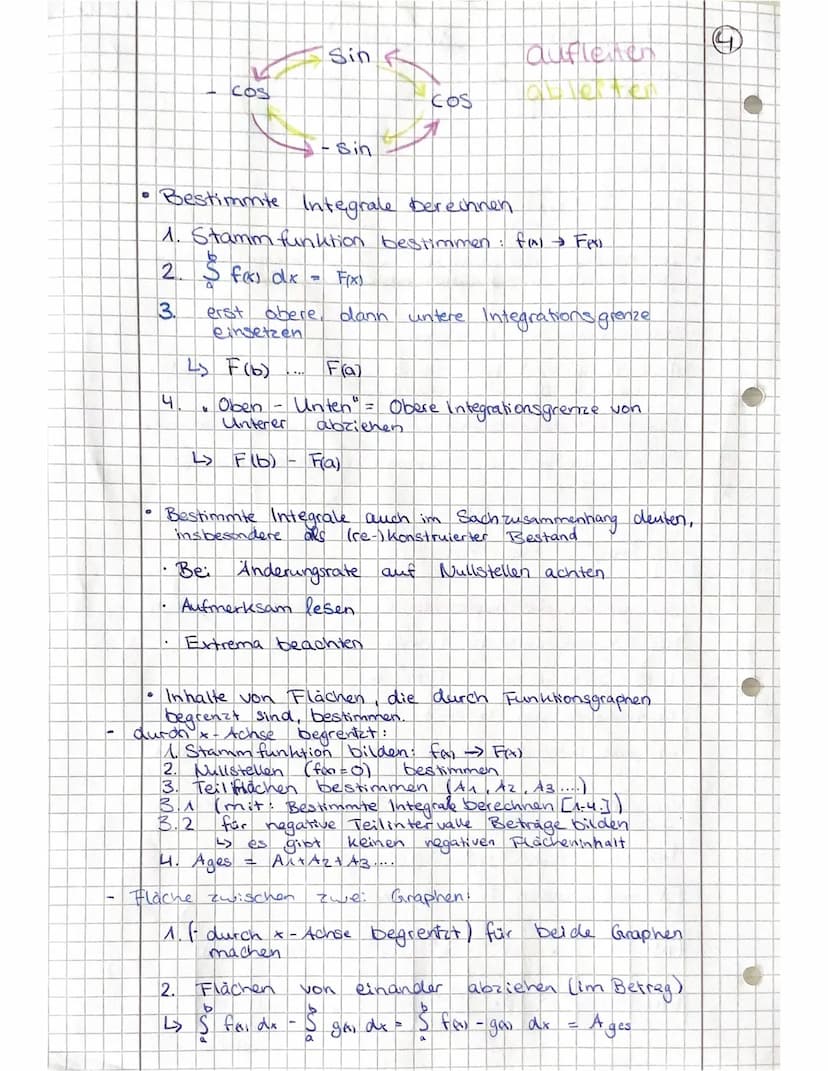 ④
Sin aufleiten
- cos cos ableiten
- Sin
• Bestimmte Integrale berechnen
1. Stammfunktion bestimmen: f(x) → F(x)
2. ∫ₐᵇ f(x) dx = F(x)
3. erst obere, dann untere Integrationsgrenze
einsetzen
↳ F(b) .... F(a)
4. "Oben - Unten" = Obere Integrationsgrenze von
Unterer abziehen
↳ F(b) - F(a)
• Bestimmte Integrale auch im Sachzusammenhang deuten,
insbesondere als (re-)konstruierter Bestand
· Bei Änderungsrate auf Nullstellen achten
· Aufmerksam lesen
· Extrema beachten
• Inhalte von Flächen, die durch Funktionsgraphen
begrenzt sind, bestimmen.
- durch x-Achse begrentzt:
1. Stammfunktion bilden: f(x) → F(x)
2. Nullstellen (f(x)=0) bestimmen
3. Teilflächen bestimmen (A1, A2, A3....)
3.1 (mit: Bestimmte Integrale berechnen [1-4.])
3.2 für negative Teilintervalle Beträge bilden
↳ es gibt keinen negativen Flächeninhalt
4. Ages = A1+A2+A3....
- Fläche zwischen zwei Graphen:
1. (- durch x-Achse begrentzt) für beide Graphen
machen
2. Flächen von einander abziehen (im Betrag)
↳ ∫ₐᵇ f(x) dx - ∫ₐᵇ g(x) dx = ∫ₐᵇ f(x) - g(x) dx = Ages